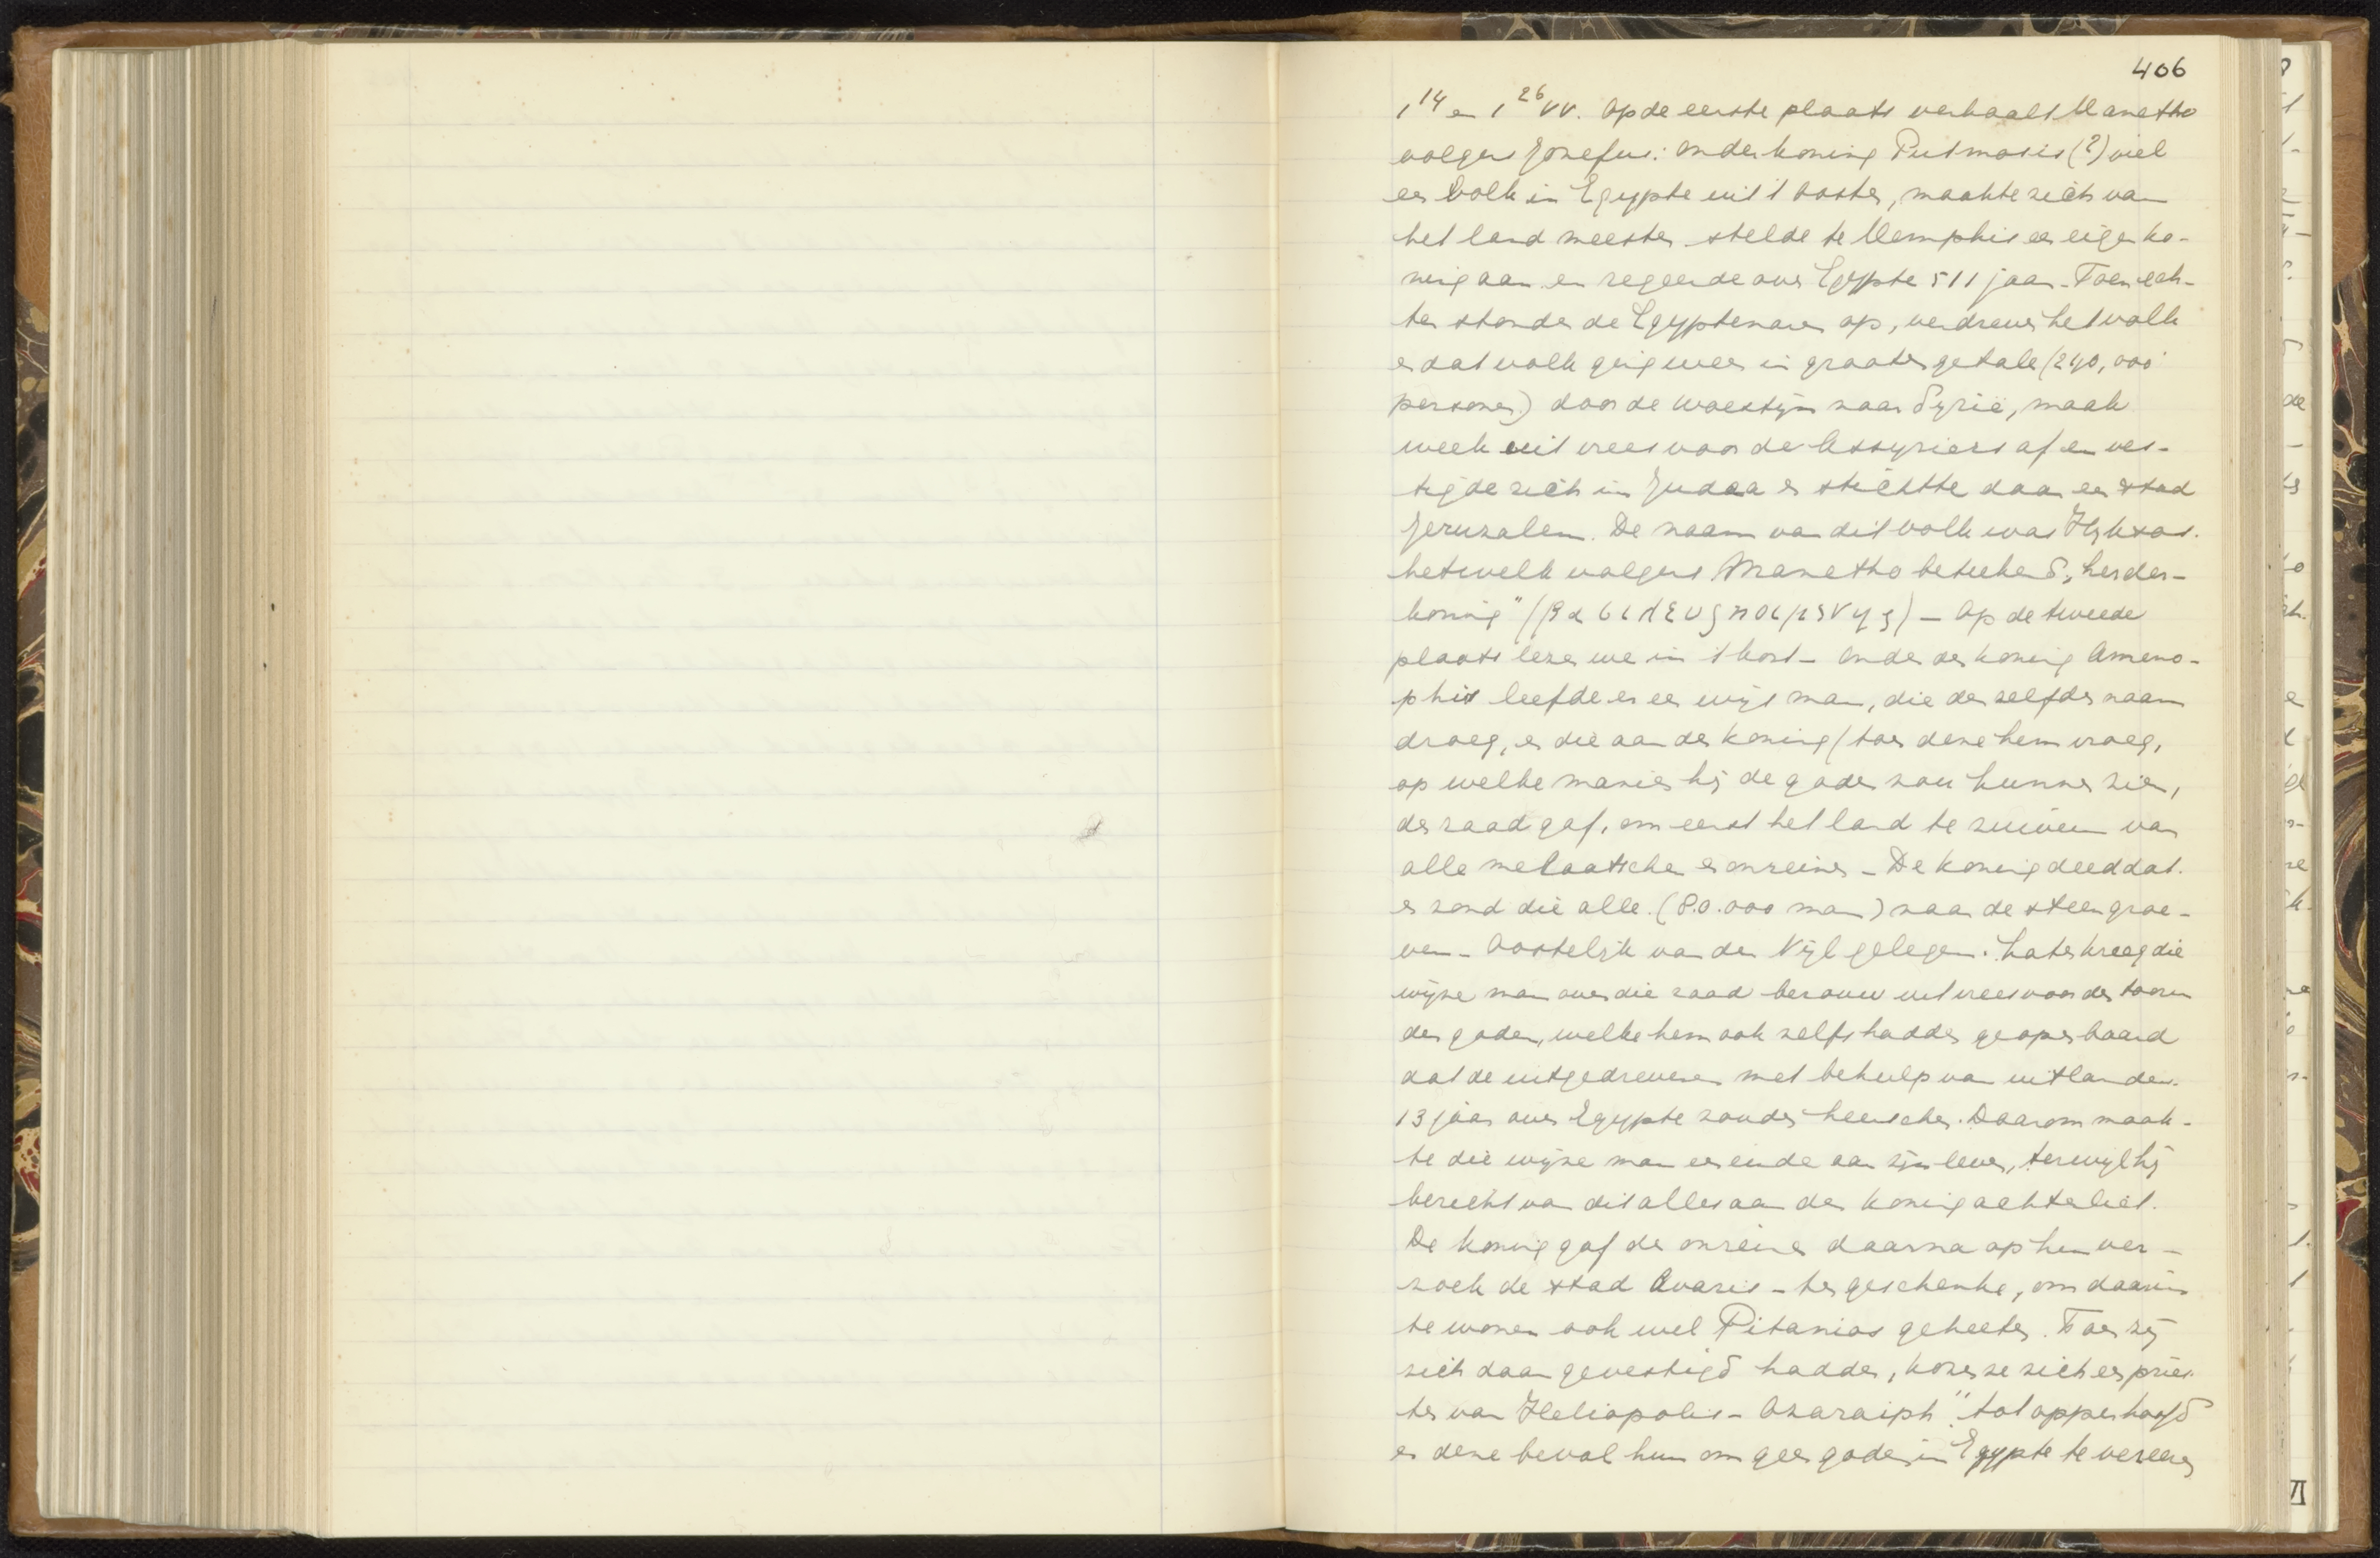 406
1¹⁴ en 1²⁶ vv. Op de eerste plaats verhaalt Manetho
volgens Jozefus: onder koning Putmosis (?) viel
een volk in Egypte uit 't Oosten, maakte zich van
het land meester stelde te Memphis een eigen ko-
ning aan en regeerde over Egypte 511 jaar. Toen ech-
ter stonden de Egyptenaren op, verdreven het volk
en dat volk ging weer in grooten getale (240,000
personen) door de woestijn naar Syrië, maak
week uit vrees voor de Assyriers af en ves-
tigde zich in Judaea en stichtte daar een stad
Jeruzalem. De naam van dit volk was Hyksos.
hetwelk volgens Manetho beteekend „herder-
koning" (βασιλεὺς ποιμένης) – Op de tweede
plaats lezen we in 't kort – Onder den koning Ameno-
phis leefde er een wijs man, die denzelfden naam
droeg, en die aan den koning (toen deze hem vroeg,
op welke manier hij de goden zou kunnen zien,
den raad gaf, om eerst het land te zuiveren van
alle melaatschen en onreinen – De koning deed dat.
en zond die alle. (80.000 man) naar de steengroe-
ven – Oostelijk van den Nijl gelegen. Later kreeg die
wijze man over die raad berouw uit vrees voor den toorn
der goden, welke hem ook zelfs hadden geopenbaard
dat de uitgedrevenen met behulp van uitlanders
13 jaar over Egypte zouden heerschen. Daarom maak-
te die wijze man een einde aan zijn leven, terwijl hij
bericht van dit alles aan den koning achterliet.
De koning gaf de onreinen daarna op hun ver-
zoek de stad Avaris – ten geschenke, om daarin
te wonen ook wel Pitanios geheeten. Toen zij
zich daar gevestigd hadden, kozen ze zich een pries-
ter van Heliopolis – Osaraiph" tot opperhoofd
en deze beval hun om geen goden in Egypte te vereeren
VI